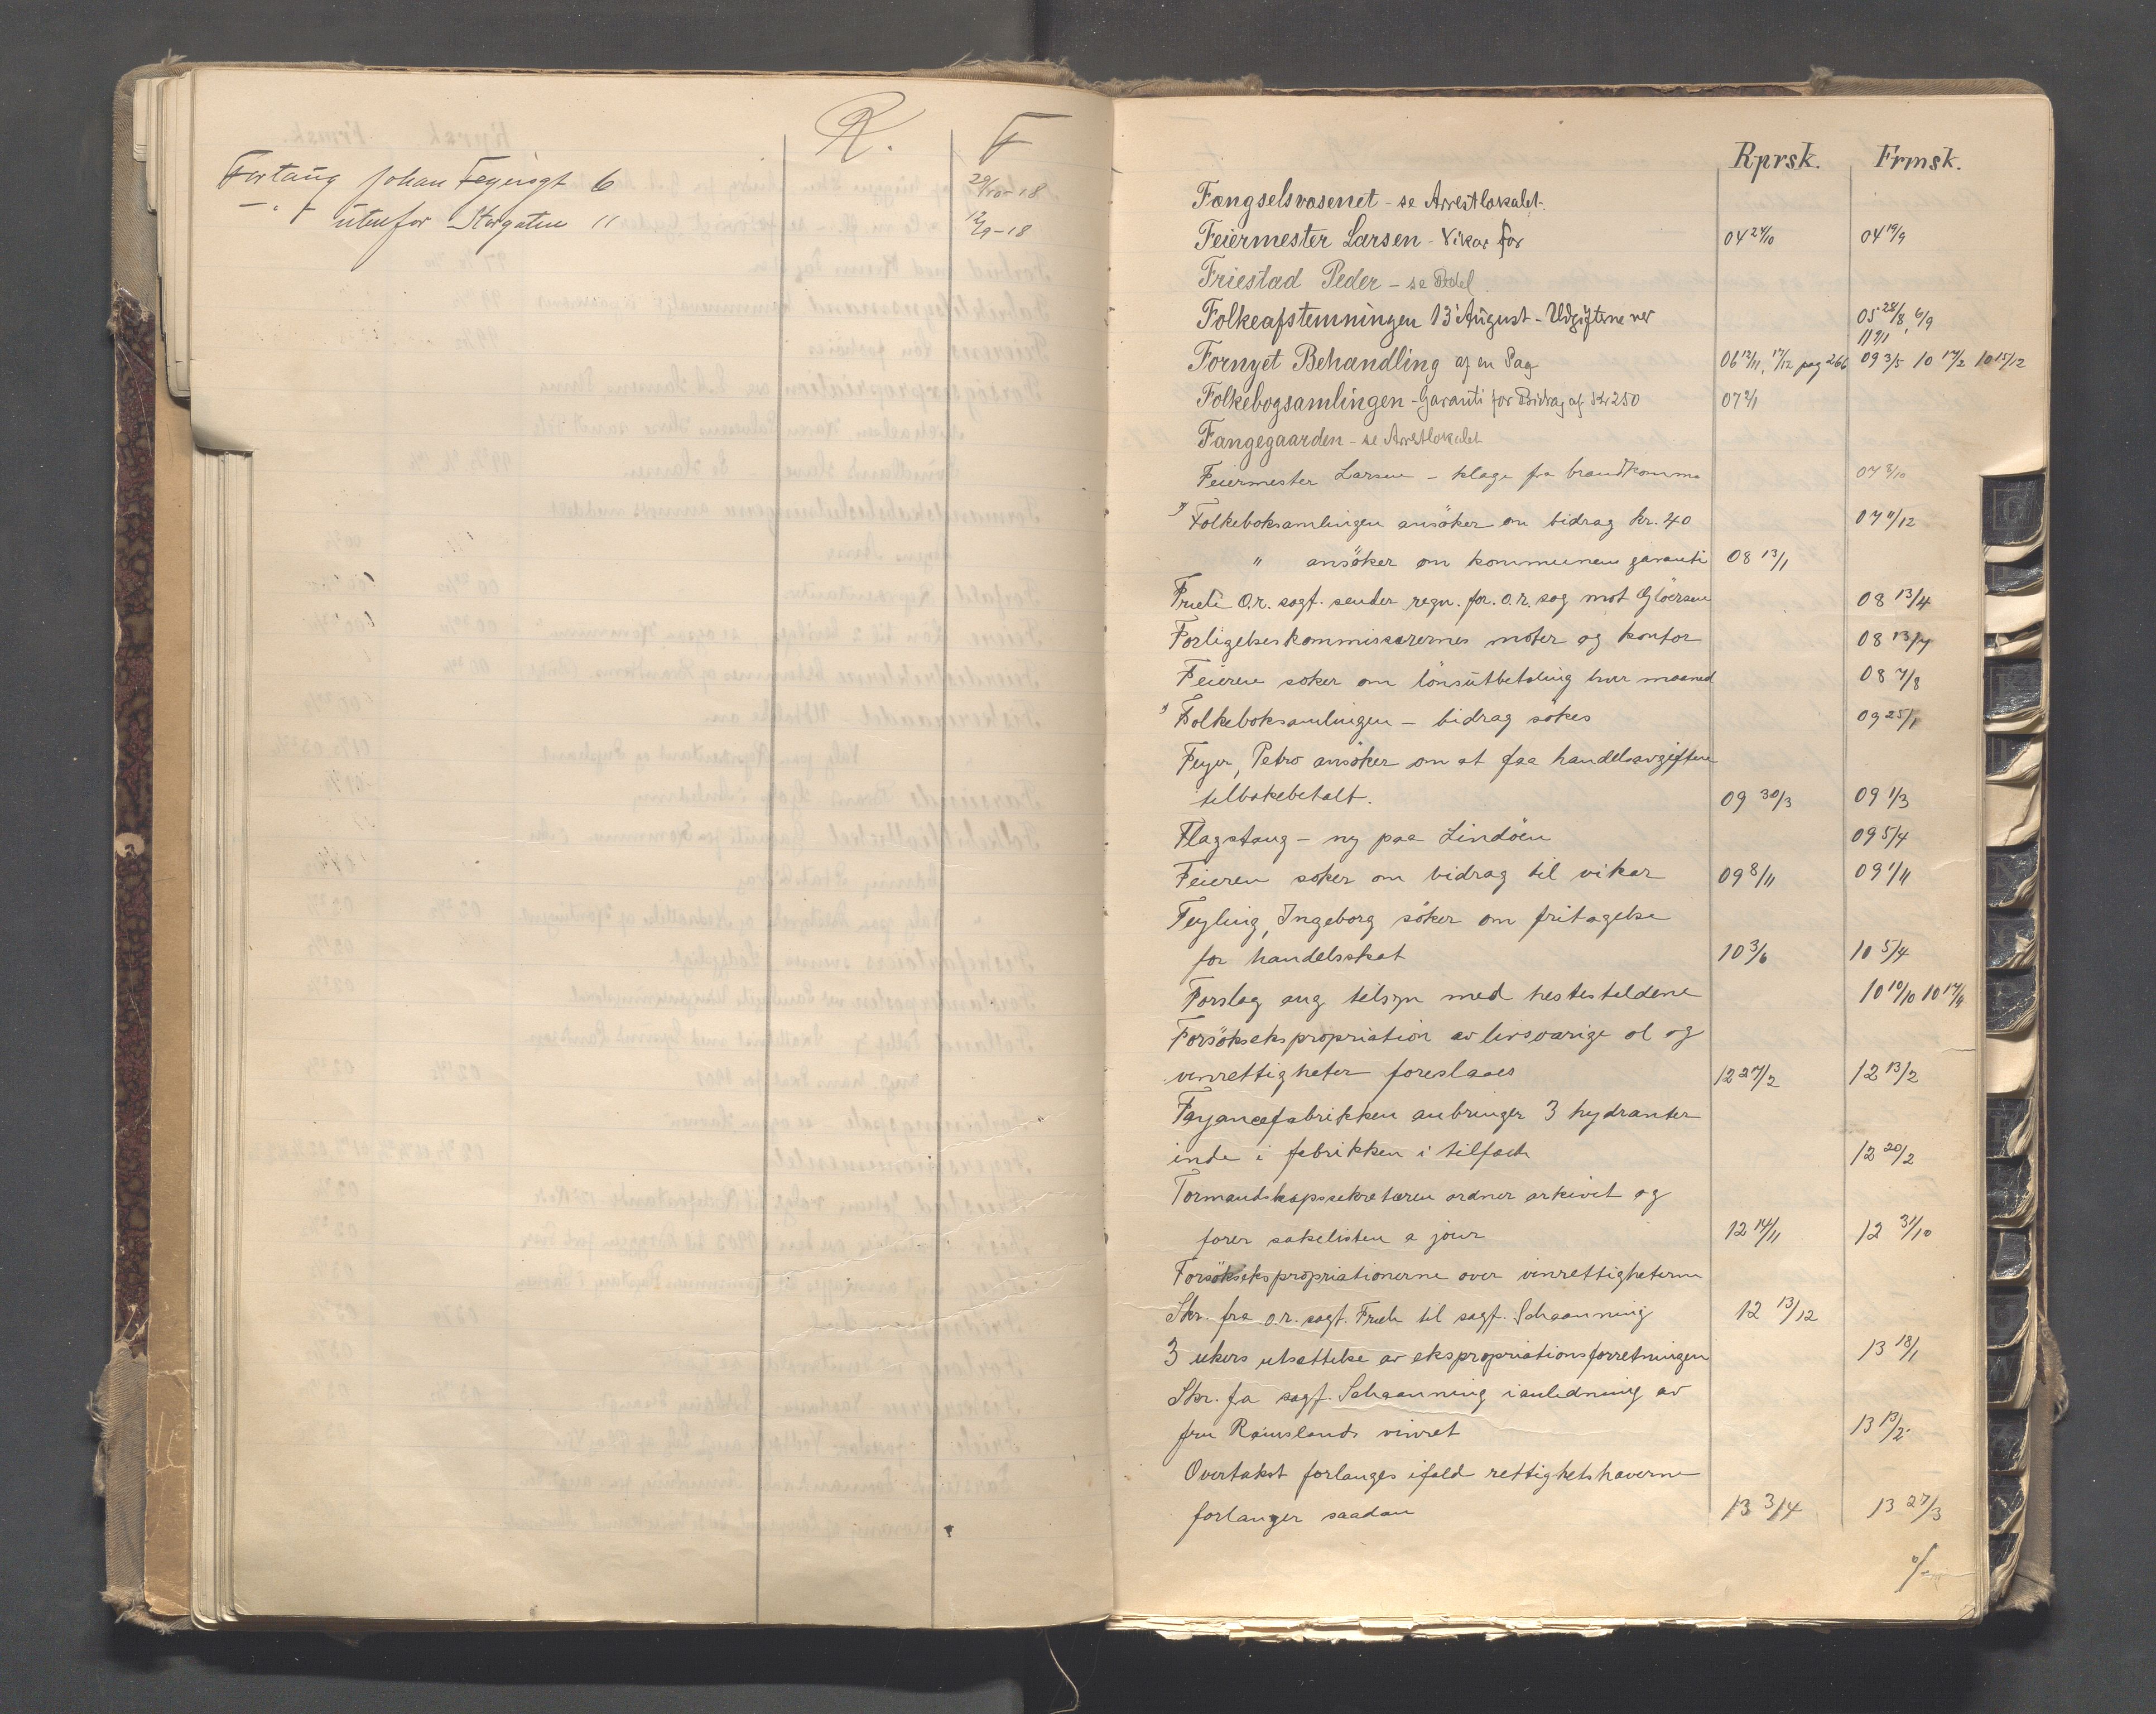 R. F
Fortaug Johan Feyersgt 6 29/10-18
— " — utenfor Storgaten 11 12/9-18
Rprsk. Frmsk.
Fængselsvæsenet - se Arrestlokalet.
Feiermester Larsen - Vikar for 04 24/10 04 19/9
Friestad Peder - se
Folkeafstemningen 13 August - Udgifterne ver 05 28/8, 6/9
11 9/1
Fornyet Behandling af en Sag 06 13/11, 17/12 pag 266 09 3/5 10 17/2 10 15/12
Folkebogsamlingen - Garanti for Bidrag af Kr 250 07 2/1
Fangegaarden - se Arrestlokalet
Feiermester Larsen - klage fra brandkomm. 07 8/10
Folkeboksamlingen ansöker om bidrag kr. 40 07 11/12
" ansöker om kommunens garanti 08 13/1
Frich O.r. sagf. sender regn. for o.r. sag mot Gjöersen 08 13/4
Forligelseskommissærernes møter og kontor 08 13/7
Feieren søker om lönsutbetaling hver maaned 08 7/8
Folkeboksamlingen - bidrag søkes 09 25/1
Feyer, Petro ansöker om at faa handelsavgiften
tilbakebetalt. 09 30/3 09 1/3
Flagstang - ny paa Lindöen 09 5/4
Feieren søker om bidrag til vikar 09 8/11 09 1/11
Feyling, Ingeborg söker om fritagelse
for handelsskat 10 3/6 10 5/4
Forslag ang tilsyn med hesteholdene 10 10/10 10 17/4
Forsöksekspropriation av livsvarige øl og
vinrettigheter foreslaaes 12 27/2 12 13/2
Fayancefabrikken anbringer 3 hydranter
inde i fabrikken i tilfælde 12 20/2
Formandskapssekretæren ordner arkivet og
fører sakelisten a jour 12 14/11 12 31/10
Forsöksekspropriationerne over vinrettigheterne
Skr. fra o.r. sagf. Frich til sagf. Schaanning 12 13/12
3 ukers utsættelse av ekspropriationsforretningen 13 18/1
Skr. fra sagf. Schaanning i anledning av
fru Ramslands vinret 13 13/2
Overtakst forlanges ifald rettighetshaverne
forlanger saadan 13 3/4 13 27/3